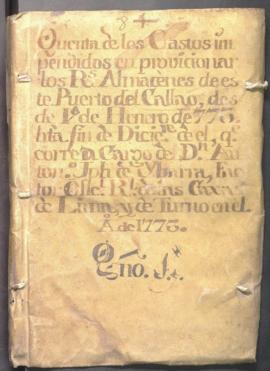 8 +
Quenta de los Gastos im
pendidos en provicionar
los Rs. Almacenes de es
te Puerto del Callao, des
de 1º de Henero de 773
hta. fin de Dicire. de el, q.
corre a Cargo de Dn. An
ton. Jph. de
Offl. Rl. de las Caxas
de Lima, y de Turno en el
A. de 1773.